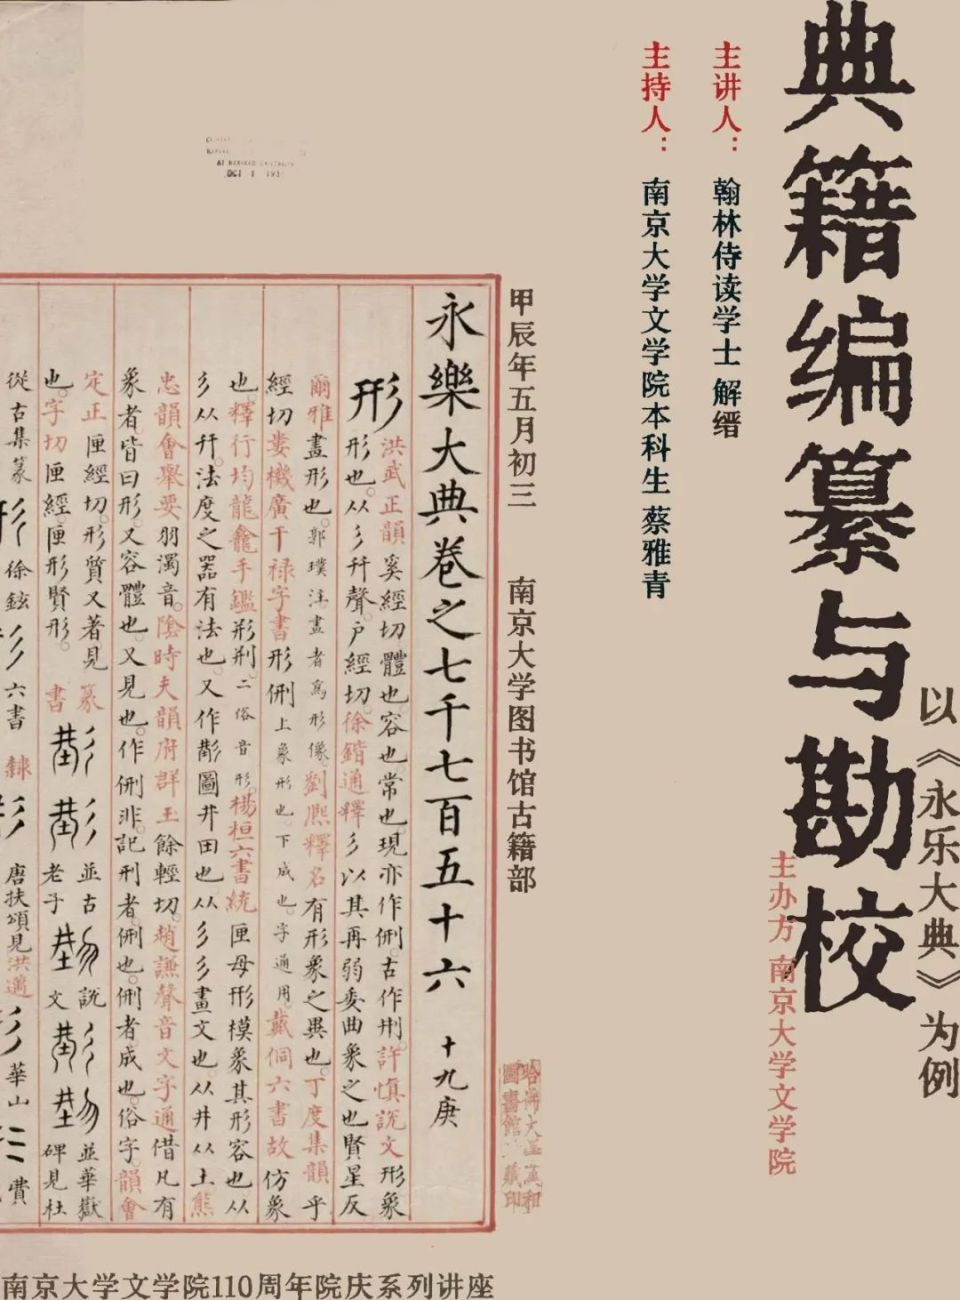 典籍编纂与勘校
以《永乐大典》为例
主讲人：翰林侍读学士 解缙
主持人：南京大学文学院本科生 蔡雅青
主办方 南京大学文学院
甲辰年五月初三 南京大学图书馆古籍部
永樂大典卷之七千七百五十六 十九庚
形
洪武正韻奚經切體也容也常也現亦作侀古作㓝許慎說文形象
形也从彡幵聲户經切徐鍇通釋彡以其再弱委曲象之也賢星反
爾雅畫形也郭璞注畫者為形像劉熈釋名有形象之異也丁度集韻乎
經切婁機廣干禄字書形侀上象形也下成也字通用戴侗六書故仿象
也釋行均龍龕手鑑形㓝二俗音形楊桓六書統匣母形模象其形容也从
彡从幵法度之器有法也又作圖井田也从彡彡畫文也从井从土熊
忠韻會舉要羽濁音陰時夫韻府群玉餘輕切趙謙聲音文字通借凡有
象者皆曰形又容體也又見也作侀非記刑者侀也侀者成也俗字韻會
定正匣經切形質又著見篆並古說並華嶽
也字切匣經匣形賢形書老子文碑見杜
從古集篆徐鉉六書隸唐扶頌見洪邁華山費
南京大学文学院110周年院庆系列讲座